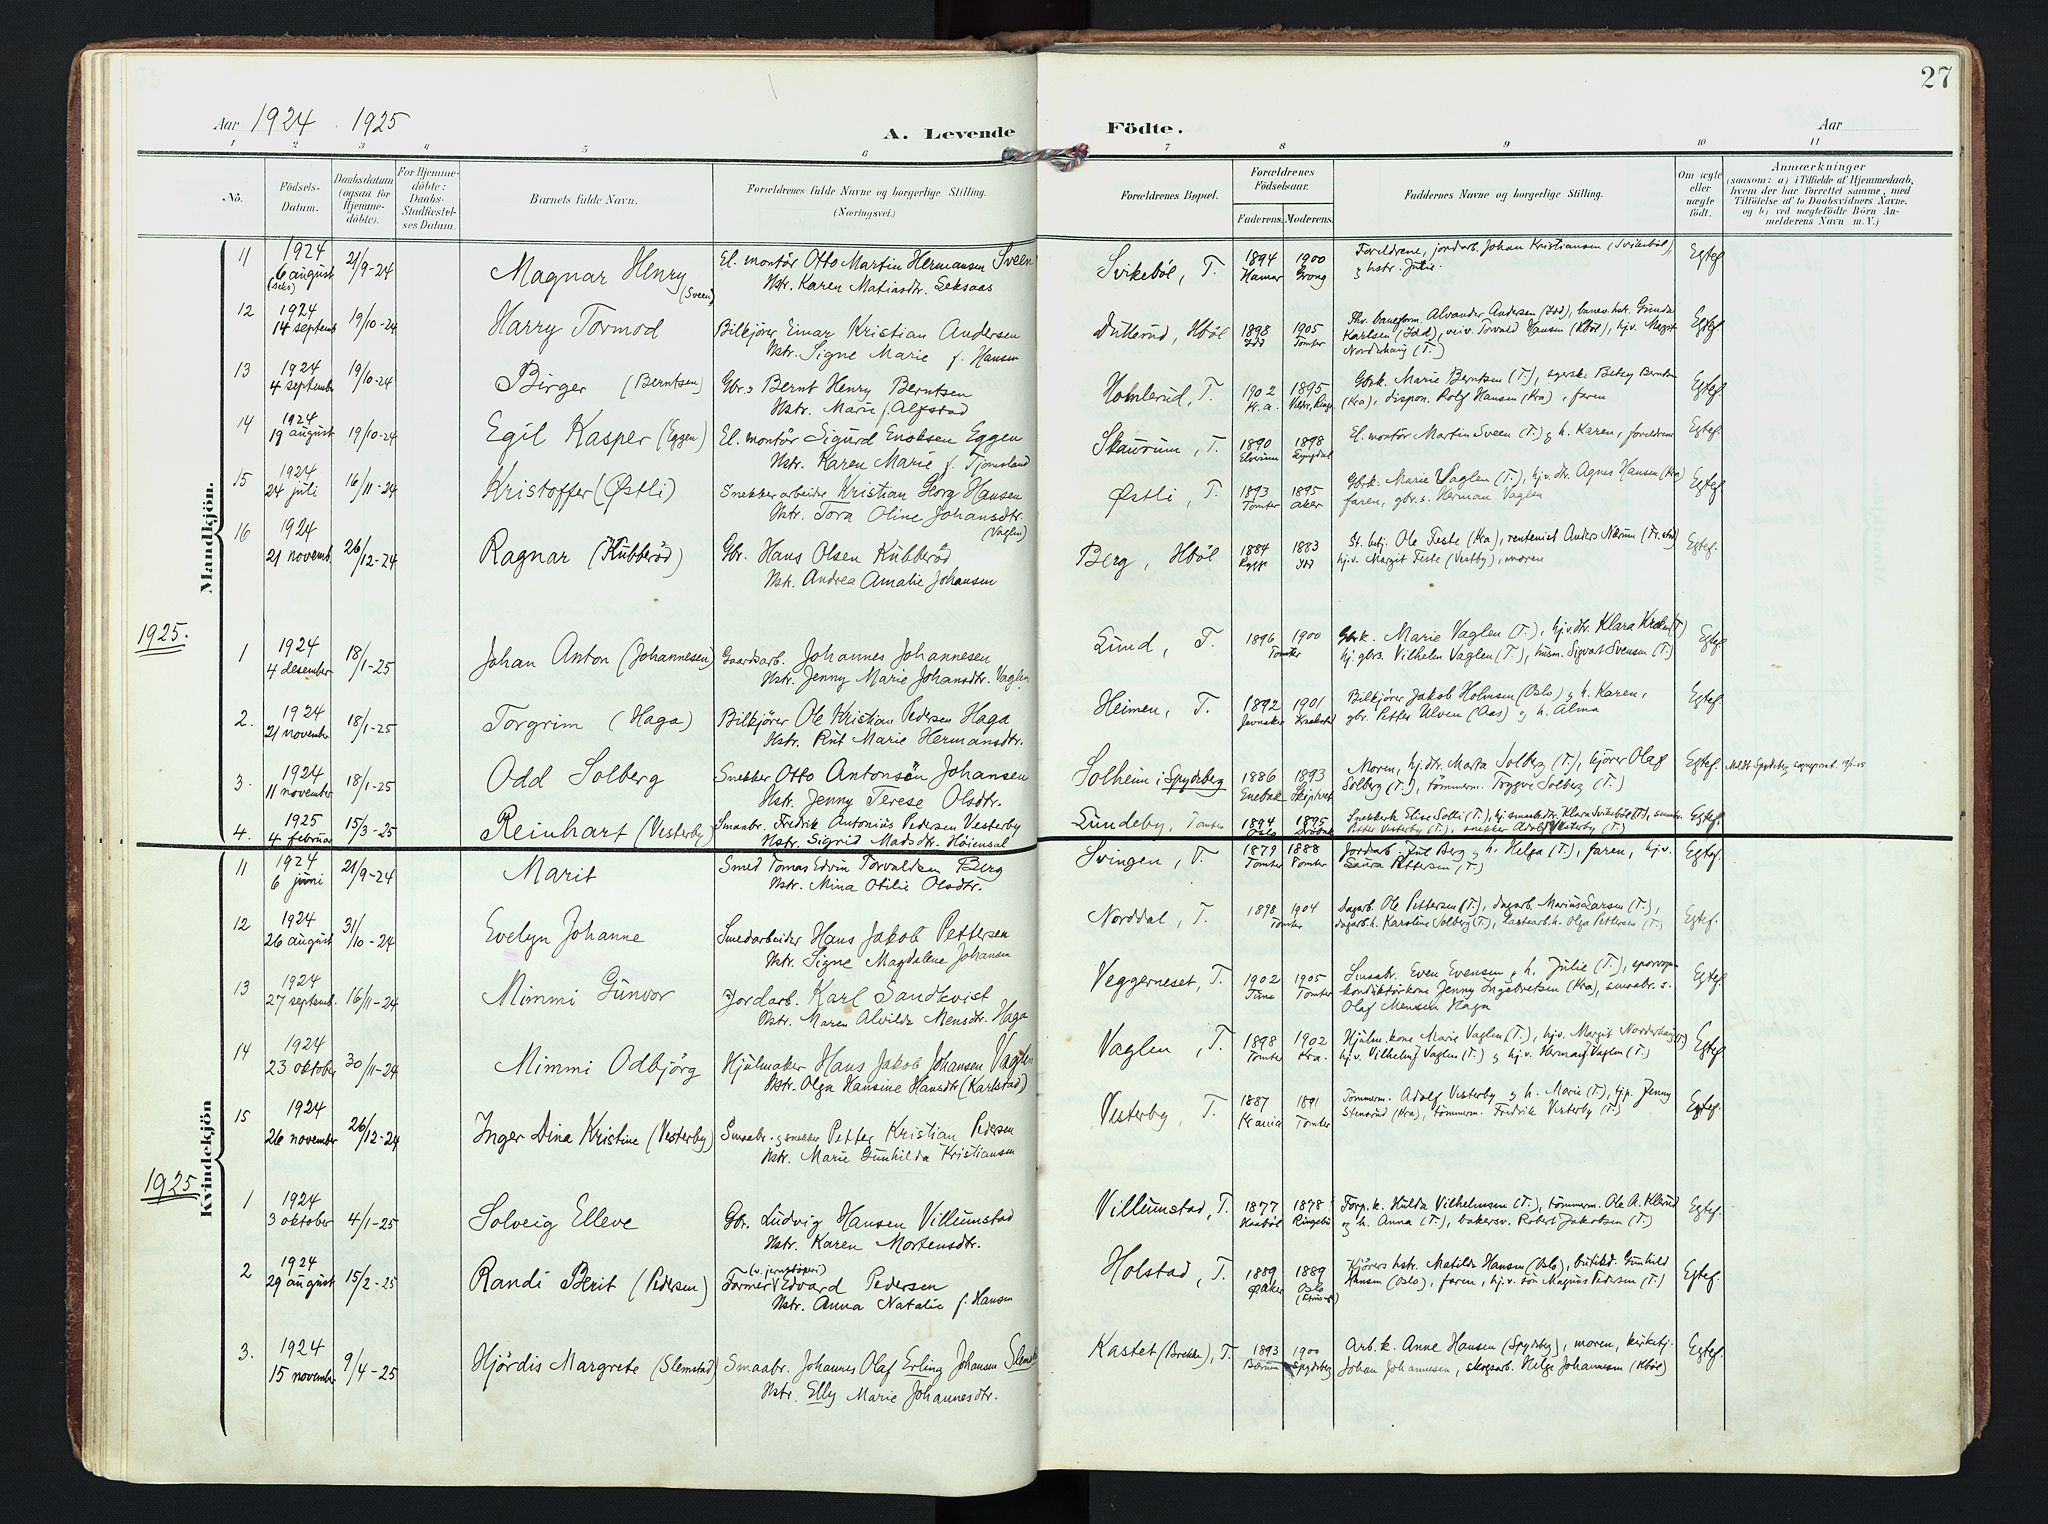 27
Aar 1924. 1925
A. Levende Födte.
Aar
1 2 3 4 5 6 7 8 9 10 11
No.
Födsels-Datum.
Daabsdatum (ogsaa for Hjemmedöbte).
For Hjemmedöbte: Daabs-Stadfæstelses Datum.
Barnets fulde Navn.
Forældrenes fulde Navne og borgerlige Stilling. (Næringsvei.)
Forældrenes Bopæl.
Forældrenes Födselsaar.
Faderens. Moderens.
Faddernes Navne og borgerlige Stilling.
Om ægte eller uægte födt.
Anmærkninger
(saasom: a) i Tilfælde af Hjemmedaab, hvem der har forrettet samme, med Tilföielse af to Daabsvidners Navne, og b) ved uægtefödte Börn Anmelderens Navn m. V.)
Mandkjön.
11 1924 6 august (seks) 21/9-24 Magnar Henry (Sveen) El. montör Otto Martin Hermansen Sveen Svikebøl, T. 1894 Hamar 1900 Grong Foreldrene, jordarb. Johan Kristiansen (Svikebøl), Egtef.
Hstr. Karen Matiasdr. Seksaas g hstr. Julie.
12 1924 14 septemb 19/10-24 Harry Tormod Bilkjører Einar Kristian Andersen Dutterud, Hbøl 1898 Idd 1905 Tomter Fhv. baneform. Alvander Andersen (Idd), banev. hst. Gunda Egtef
Hstr. Signe Marie f. Hansen Karlsen (Idd), veiv. Torvald Hansen (Hbøl), hj.v. Margit
(T.)
13 1924 4 septembr 19/10-24 Birger (Berntsen) Gbr.s Bernt Henry Berntsen Homlerud, T. 1902 Kr.a. 1895 Gbrk. Marie Berntsen (T.), syerske Betzy Berntsen Egtef.
Hstr. Marie f. Alfstad (Kra), dispon. Rolf Hansen (Kra), faren
14 1924 19 august 19/10-24 Egil Kasper (Eggen) El. montör Sigurd Enoksen Eggen Skaurum, T. 1890 Elverum 1898 Lyngdal El. montör Martin Sveen (T.) g h. Karen, foreldrene Egtef.
Hstr. Karen Marie f. Tjomsland
15 1924 24 juli 16/11-24 Kristoffer (Østli) Snekkerarbeider Kristian Georg Hansen Østli, T. 1893 Tomter 1895 Aker Gbrk. Marie Vaglen (T.), hj.v. dtr. Agnes Hansen (Kra) Egtef
Hstr. Tora Oline Johansdtr. (Vaglen) faren, gbr. s. Herman Vaglen
16 1924 21 novemb. 26/12-24 Ragnar (Kubberød) Gbr. Hans Olsen Kubberød Berg, Hbøl 1884 Rygge 1883 Idd Ole Feste (Kra), rentenist Anders (Fr.stad) Egtef.
Hstr. Andrea Amalie Johansen hj.v. Margit Feste (Vestby), moren
1925.
1 1924 4 desember 18/1-25 Johan Anton (Johannesen) Gaardsarb. Johannes Johannesen Lund, T. 1896 1900 Tomter Gbrk. Marie Vaglen (T.), hj.v. dtr. Klara (T.) Egtef.
Hstr. Jenny Marie Johansdtr. Vaglen hj. gbrs. Vilhelm Vaglen (T.), husm. Sigvart Svensen (T.)
2. 1924 21 november 18/1-25 Torgrim (Haga) Bilkjører Ole Kristian Pedersen Haga Heimen, T. 1892 Jevnaker 1901 Kraakstad Bilkjører Jakob Holmsen (Oslo) g h. Karen, Egtef.
Hstr. Rut Marie Hermansdtr. gbr. Petter Ulven (Aas) g h. Alma
3. 1924 11 november 18/1-25 Odd Solberg Snekker Otto Antonsøn Johansen Solheim i Spydeberg 1886 Enebak 1893 Skiptvet Moren, hj. dtr. Marta Solberg (T.), kjører Olaf Egtef.
Hstr. Jenny Terese Olsdtr. Solberg (T.), tømmerm. Trygve Solberg (T.)
4. 1925 4 februar 15/3-25 Reinhart (Vesterby) Smaabr. Fredrik Antonius Pedersen Vesterby Lundeby, Tomter 1894 Oslo 1895 Snekkerk. Elise Solli (T.), hj. smaabr. dtr. Klara Svikebøl (T.), smaabr. Egtef.
Hstr. Sigrid Madsdtr. Høiensal Petter Vesterby (T.), snekker Adolf Vesterby (T.)
Kvindekjön
11 1924 6 juni 21/9-24 Marit Smed Tomas Edvin Torvaldsen Berg Svingen, T. 1879 Tomter 1888 Tomter Jordarb. Jul Berg g h. Helga (T.), faren, hj.v. Egtef.
Hstr. Mina Otilie Olsdtr. Laura Pettersen (T.)
12 1924 26 august 31/10-24 Evelyn Johanne Smedarbeider Hans Jakob Pettersen Norddal, T. 1898 1904 Tomter Dagarb. Ole Pettersen (T.), dagarb. Marius Larsen (T.), Egtef.
Hstr. Signe Magdalene Johansen dagarb. h. Karoline Solberg (T.), Lastearb. h. Olga Pettersen (T.)
13 1924 27 septemb. 16/11-24 Mimmi Gunvor Jordarb. Karl Sandkvist Veggerneset, T. 1902 1905 Tomter Smaabr. Even Evensen g h. Julie (T.), sporvogns- Egtef
Hstr. Maren Alvilde Mensdtr. Haga konduktørkone Jenny Ingebretsen (Kra), smaabr. s.
Olaf Mensen Haga
14 1924 23 oktober 30/11-24 Mimmi Odbjörg Hjulmaker Hans Jakob Johansen Vaglen Vaglen, T. 1898 Tomter 1902 Kra. Hjulm. kone Marie Vaglen (T.), hj.v. Margit (T.) Egtef.
Hstr. Olga Hansine Hansdtr (Karlstad) hj.v. Vilhelm Vaglen (T.) g hj.v. Herman Vaglen (T.)
15 1924 26 november 26/12-24 Inger Dina Kristine (Vesterby) Smaabr. g snekker Petter Kristian Pedersen Vesterby, T. 1887 Krania 1891 Tomter Tömmerm. Adolf Vesterby g h. Marie (T.), hj.p. Jenny Egtef.
Hstr. Marie Gunhilda Kristiansen Stensrud (Kra), tömmerm. Fredrik Vesterby (T.)
1925
1 1924 3 oktober 4/1-25 Solveig Elleve Gbr. Ludvig Hansen Villumstad Villumstad, T. 1877 1878 Ringebu Forp. k. Hulda Vilhelmsen (T.), tömmerm. Ole A. Egtef.
Hstr. Karen Mortensdtr. g h. Anna (T.), bakersv. Robert Jakobsen (T.)
2 1924 29 august 15/2-25 Randi Berit (Pedersen) Former (v. jernstöperi) Edvard Pedersen Holstad, T. 1889 Ø Aker 1889 Oslo Kjörers hstr. Matilde Hansen (Oslo), butikd. Gunhild Egtef.
Hstr. Anna Natalie f. Hansen Hansen (Oslo), faren, hj.v. sön Magnus Pedersen (T.)
3. 1924 15 november 9/4-25 Hjördis Margrete (Slemstad) Smaabr. Johannes Olaf Erling Johansen Kastet (Brekke), T. 1893 1900 Spydeberg Arb. k. Anne Hansen (Spydeby), moren, kirketj. Egtef.
Hstr. Elly Marie Johannesdtr. Johan Johannesen, skogsarb. Helge Johannesen (Hbøl)